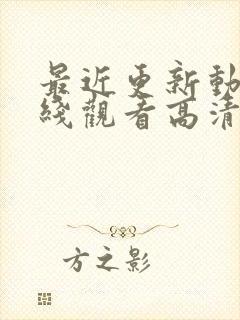 最近更新動
綫觀看高清
方之影